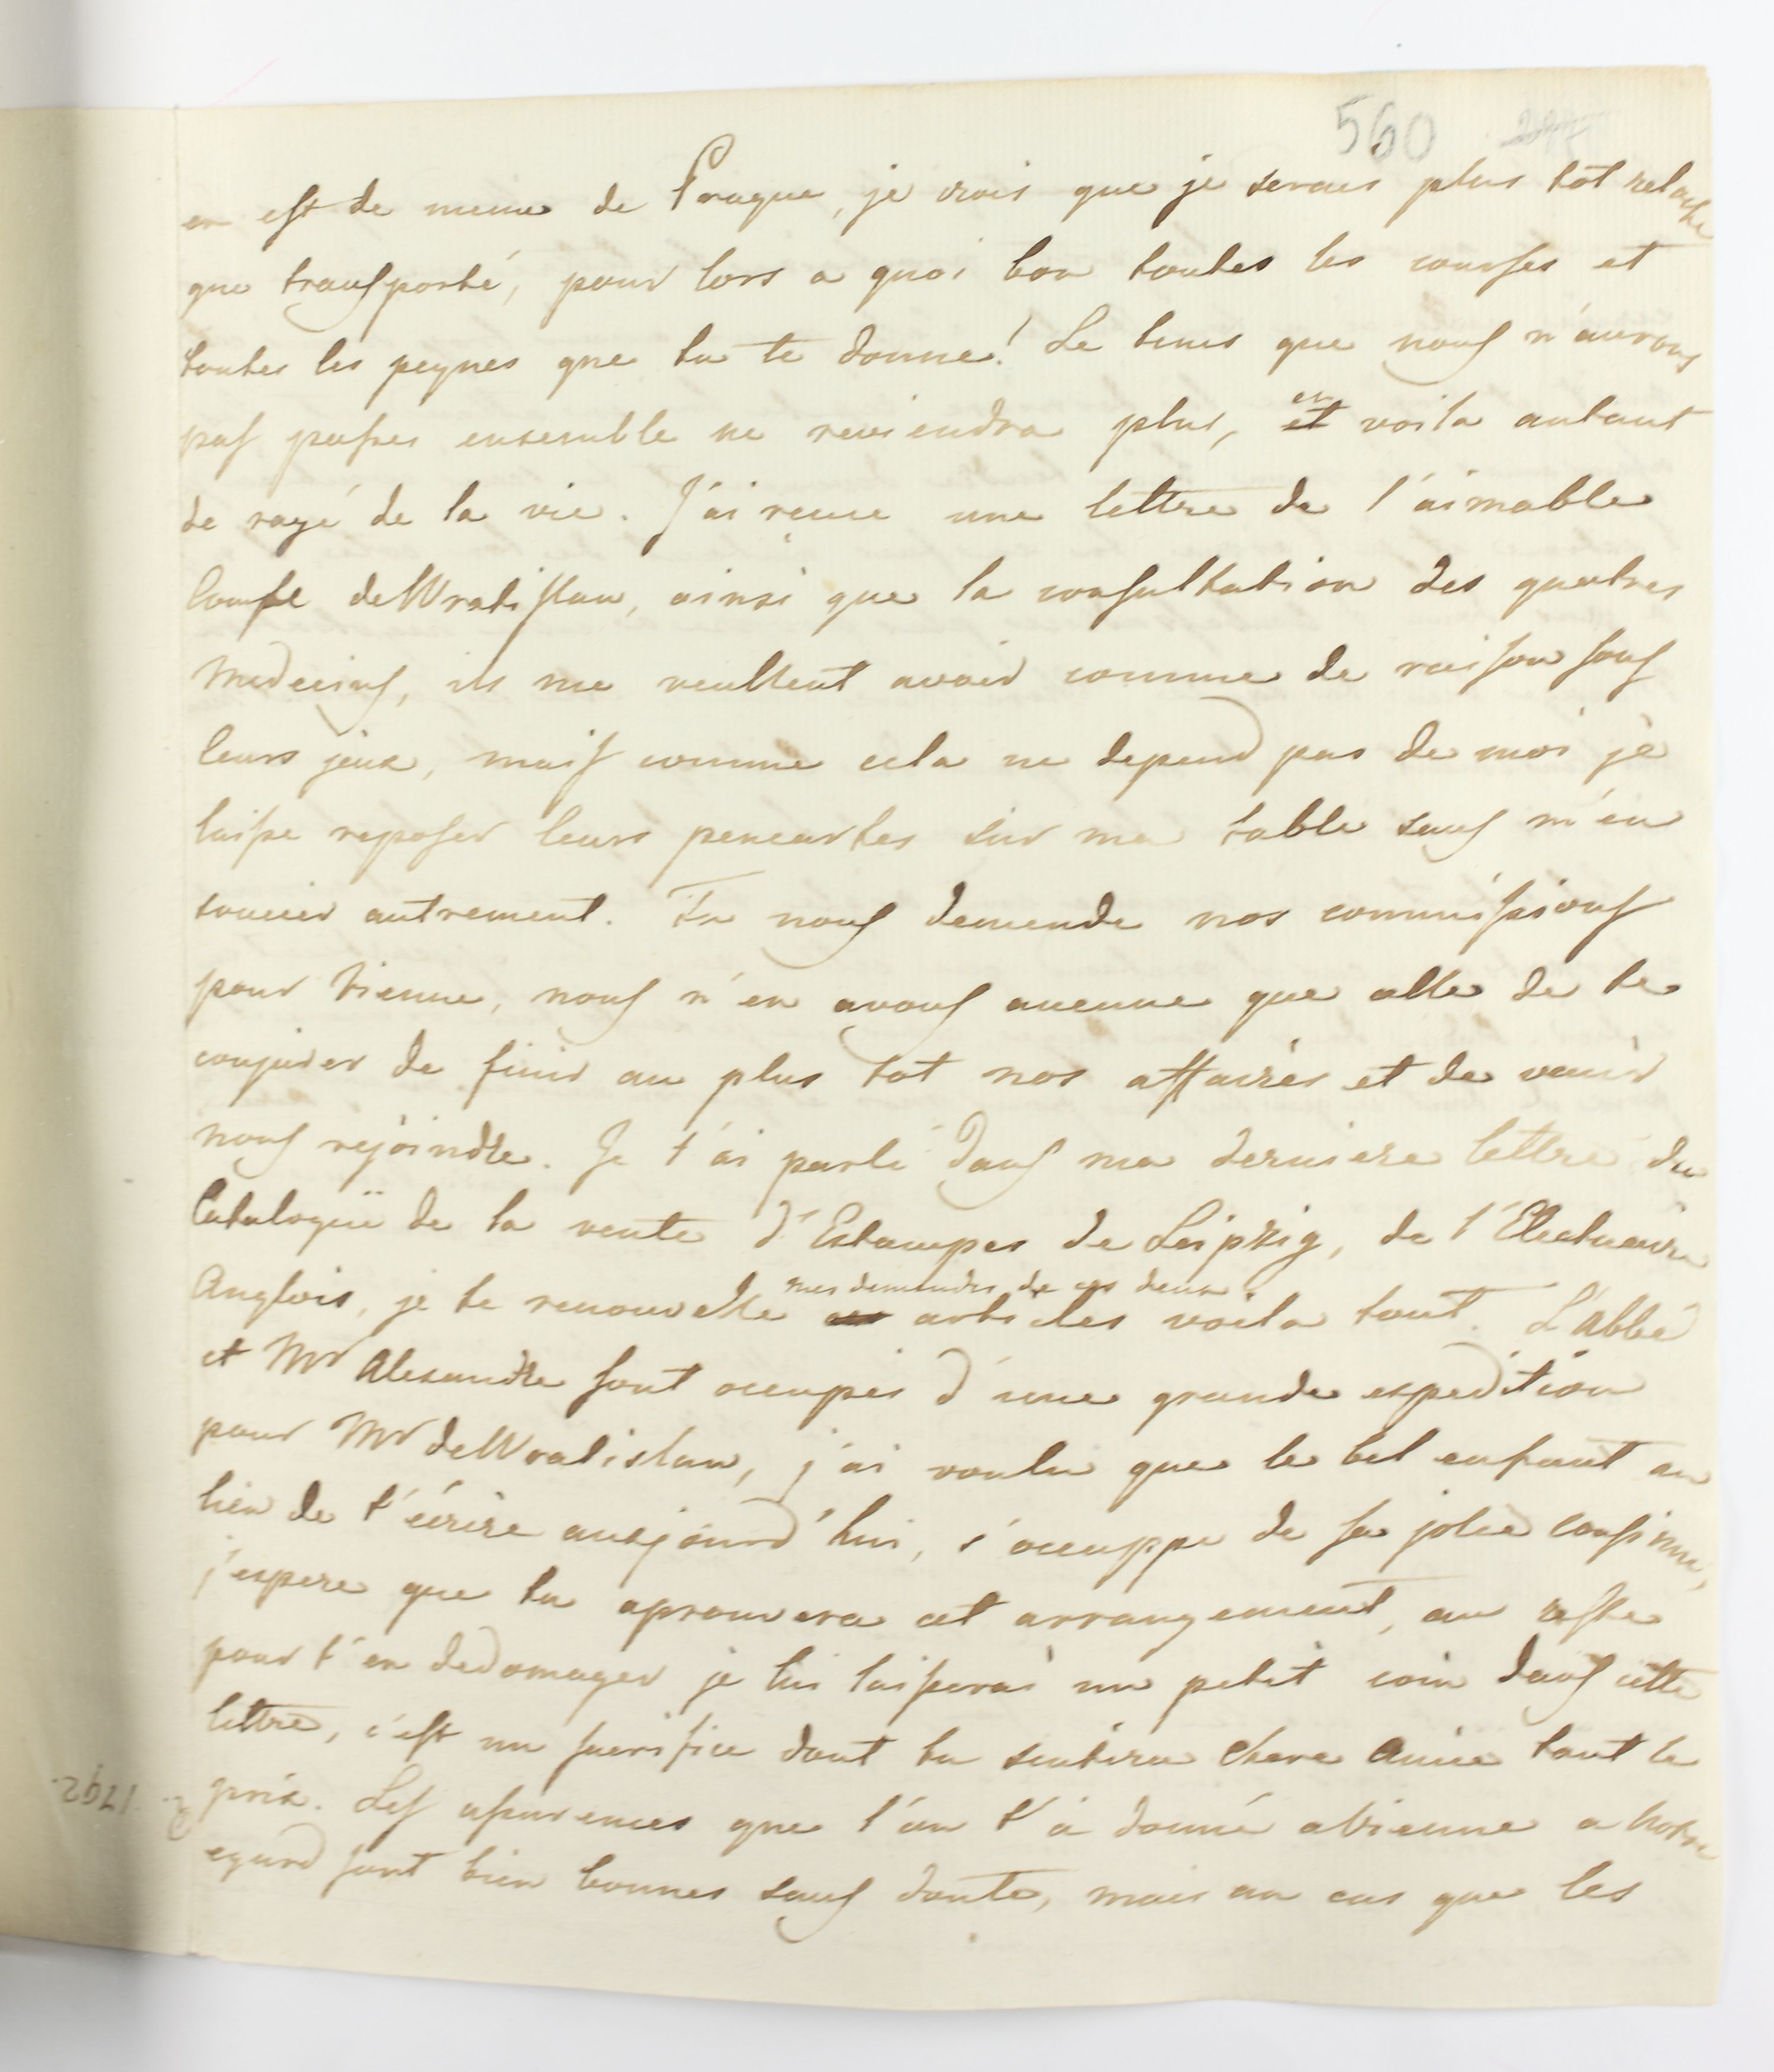 560
en est de meme de Prague, je crois que je serais plus tot relaché
que transporté, pour lors a quoi bon toutes les courses et
toutes les peynes que tu te donne! Le tems que nous n'aurons
pas passes ensemble ne reviendra plus, et en voila autant
de rayé de la vie. J'ai recue une lettre de l'aimable
Comte de Wratislau, ainsi que la consultation des quatres
Medecins, ils me veullent avoir comme de raison sous
leurs jeux, mais comme cela ne depend pas de moi je
laisse reposer leurs pencartes sur ma table sans m'en
soucier autrement. Tu nous demende nos commissions
pour Vienne, nous n'en avons aucune que celle de te
conjurer de finir au plus tot nos affaires et de venir
nous rejoindre. Je t'ai parlé dans ma derniere lettre du
Catalogüe de la vente d'Estampes de Leipzig, de l'Electuaire
mes demandes de ces deux
Anglois, je te renouvelle articles voila tout. L'Abbé
et Mr Alexandre sont occupés d'une grande expedition
pour Mr de Wratislau, j'ai voulu que le bel enfant au
lieu de t'écrire aujourd'hui, s'occuppe de sa jolie cousine,
j'espere que tu aprouvera cet arrangement, au reste
pour t'en dedomager je lui laisserai un petit coin dans cette
lettre, c'est un sacrifice dont tu sentira chere Amie tout le
prix. Les assurences que l'on t'a donné a Vienne a notre
egard sont bien bonnes sans doute, mais au cas que les
1792.